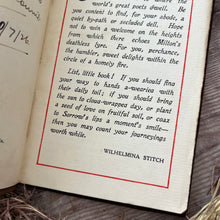 world's great poets dwell. Be
you content to find, for your abode, a
quiet breath or secluded dell. Hope
not to win a welcome on the heights
from which there echoes Milton's
deathless lyre. For you, perchance,
the humbler, sweet delights within the
circle of a homely fire.
List, little book! If you should find
your way to hands a-wearied with
their daily toil; if you should bring
the sun to cloud-wrapped day, or plant
a seed of love on fruitful soil, or coax
to Sorrow's lips a moment's smile—
then you may count your journeyings
worth while.
WILHELMINA STITCH